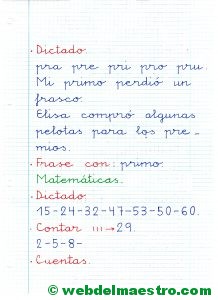 · Dictado.
pra pre pri pro pru.
Mi primo perdió un
frasco.
Elisa compró algunas
pelotas para los pre-
mios.
· Frase con: primo.
Matemáticas.
· Dictado.
15-24-32-47-53-50-60.
· Contar III→29.
2-5-8-
· Cuentas.
© webdelmaestro.com